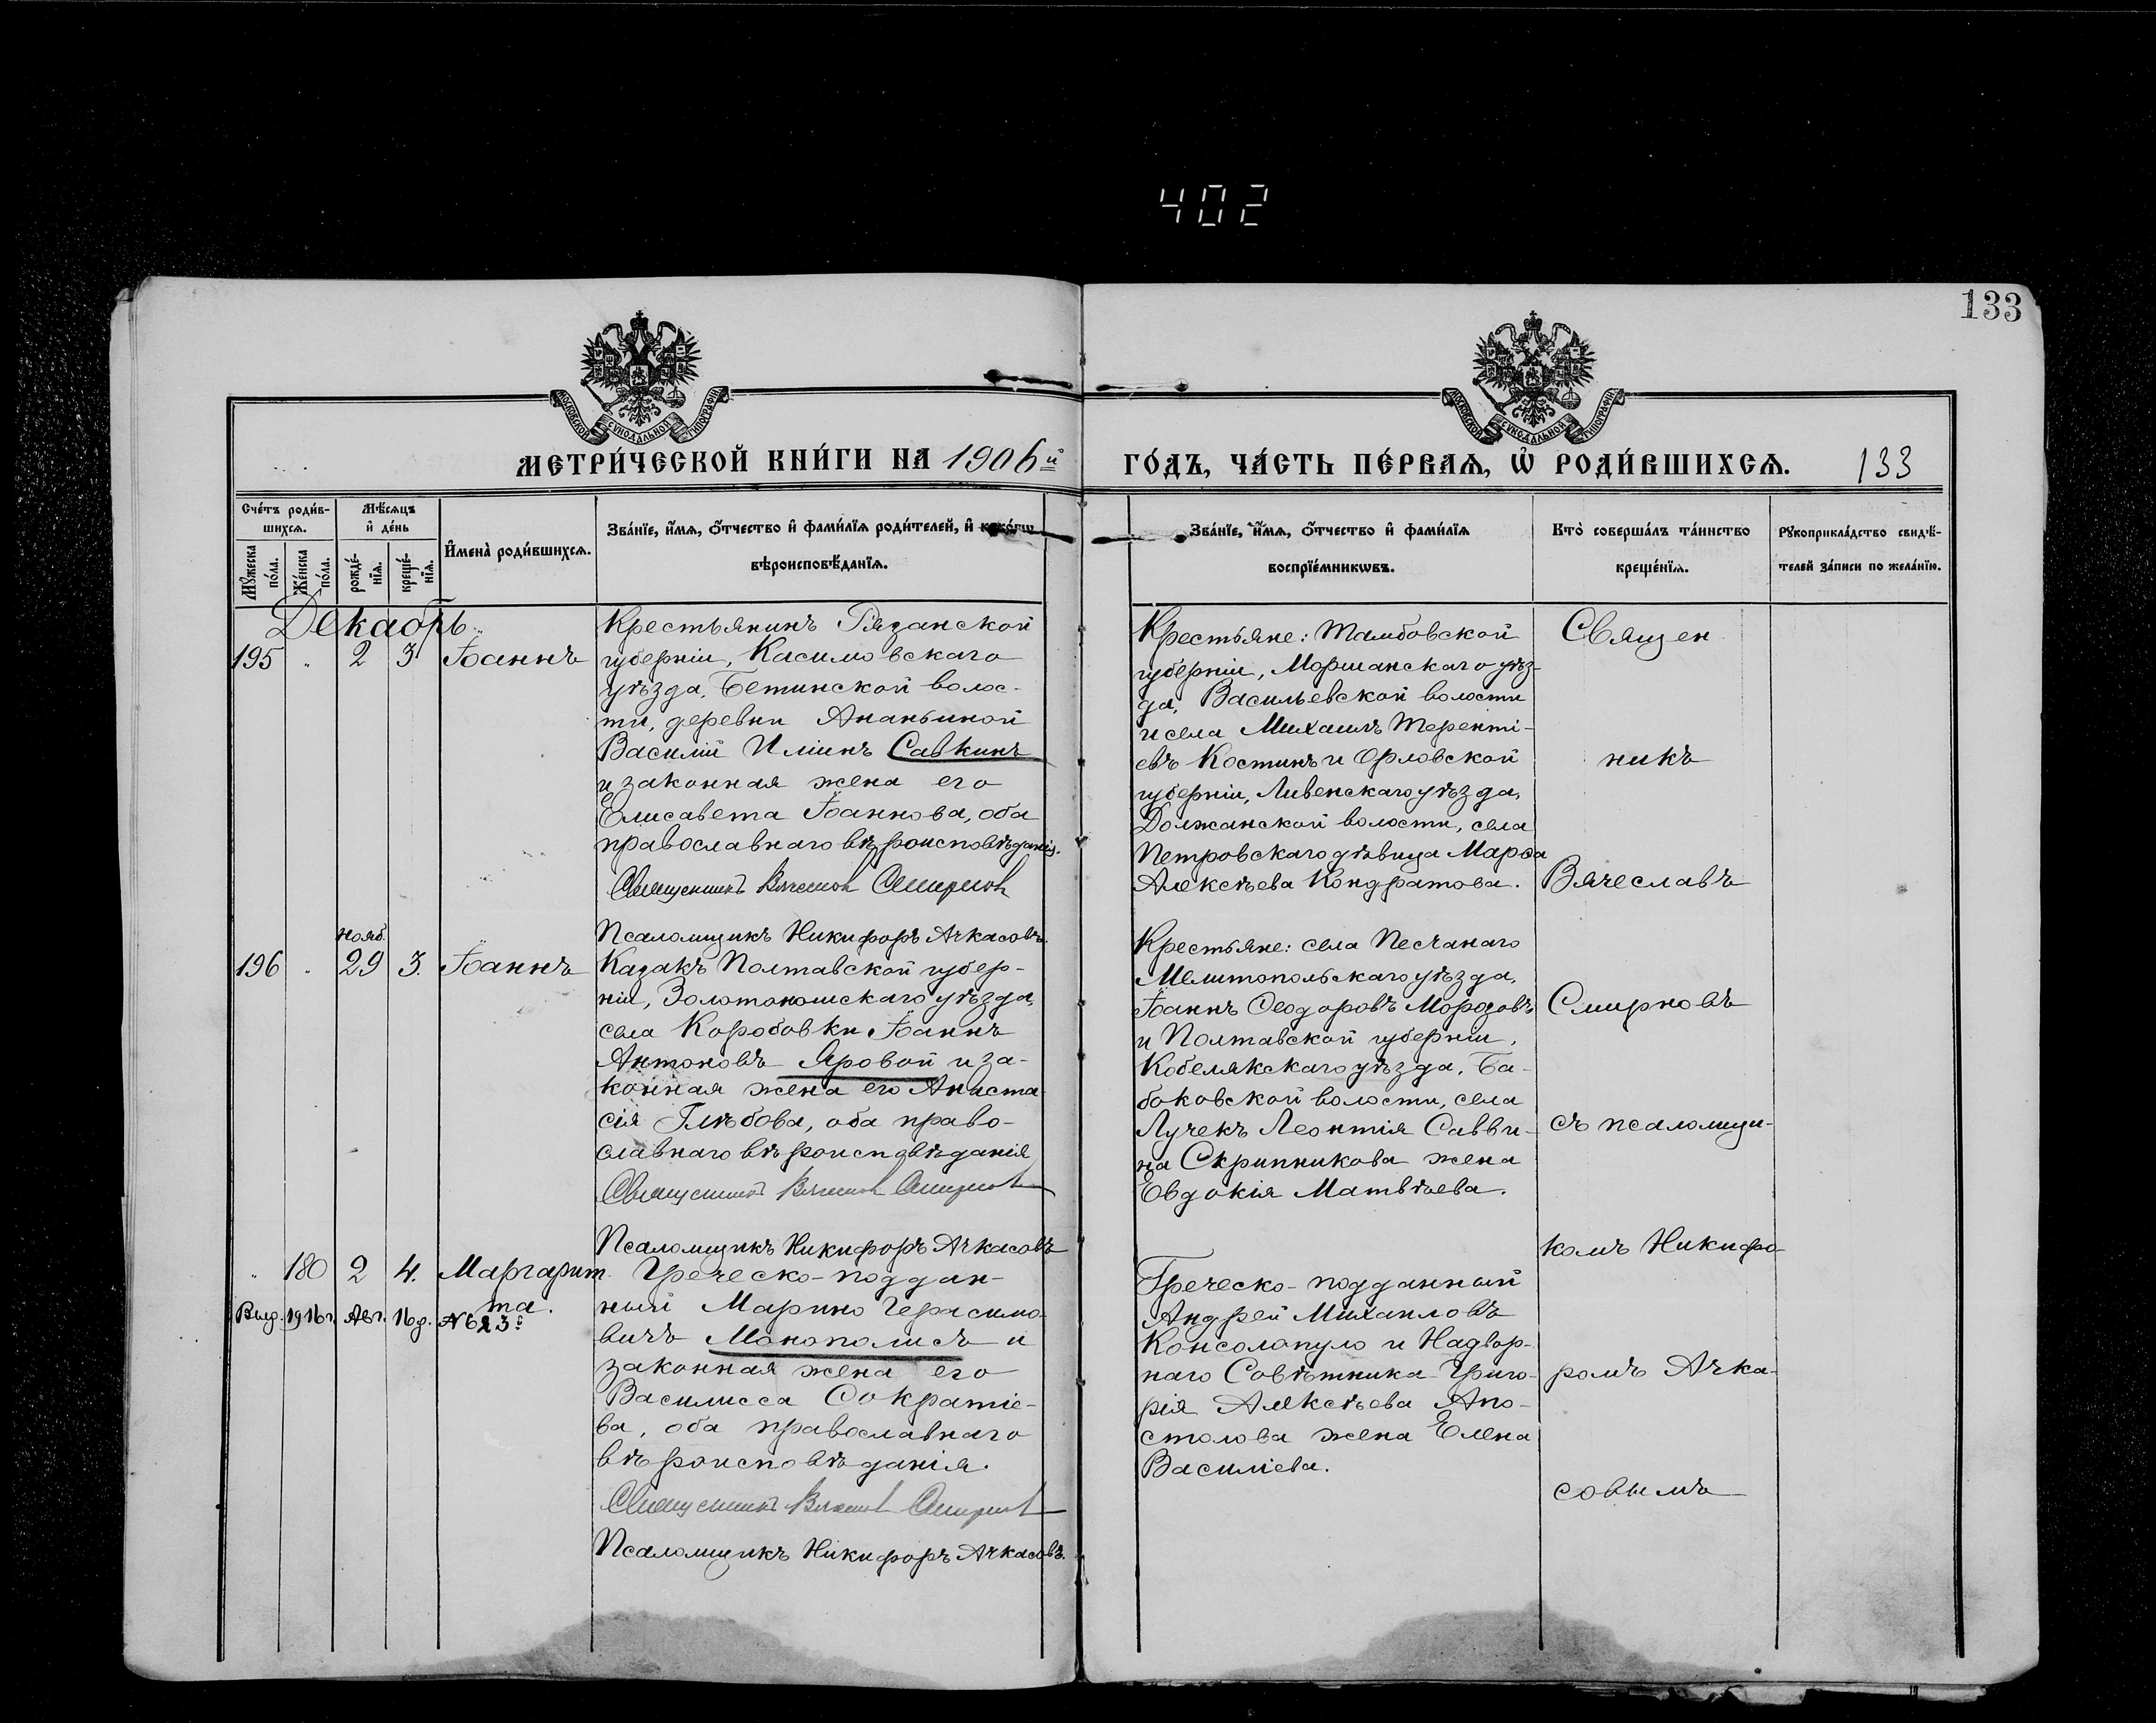 402
133
МОСКОВСКОЙ СѴНОДАЛЬНОЙ ТИПОГРАФІИ
МОСКОВСКОЙ СѴНОДАЛЬНОЙ ТИПОГРАФІИ
МЕТРИ́ЧЕСКОЙ КНИ́ГИ НА 1906й
ГО́ДЪ, ЧА́СТЬ ПЕ́РВАѦ, Ѽ РОДИ́ВШИХСѦ. 133
Сче́тъ роди́в-
шихсѧ.
Мꙋ́жеска
по́ла.
Же́нска
по́ла.
Мѣ́сѧцъ
и҆ де́нь
рожде́-
нїѧ.
креще́-
нїѧ.
И҆мена̀ роди́вшихсѧ.
Зва́нїе, и҆́мѧ, ѻ҆́тчество и҆ фами́лїѧ роди́телей, и҆ како́гѡ
вѣроисповѣ́данїѧ.
Зва́нїе, и҆́мѧ, ѻ҆́тчество и҆ фами́лїѧ
воспрїе́мникѡвъ.
Кто̀ соверша́лъ та́инство
креще́нїѧ.
Рꙋкоприкла́дство свидѣ́-
телей за́писи по жела́нїю.
Декабрь
195 " 2 3 Іоаннъ
Крестьянинъ Рязанской
губерніи, Касимовскаго
уѣзда, Бетинской волос-
ти, деревни Ананьиной
Василій Иліинъ Савкинъ
и законная жена его
Елисавета Іоаннова, оба
православнаго вѣроисповѣданія.
Священникъ Вячеславъ Смирновъ
Псаломщикъ Никифоръ Ачкасовъ.
Крестьяне: Тамбовской
губерніи, Моршанскаго уѣз-
да, Васильевской волости
и села Михаилъ Теренті-
евъ Костинъ и Орловской
губерніи, Ливенскаго уѣзда,
Должанской волости, села
Петровскаго дѣвица Марѳа
Алексѣева Кондратова.
нояб.
196 " 29 3. Іоаннъ
Казакъ Полтавской губер-
ніи, Золотоношскаго уѣзда,
села Коробовки Іоаннъ
Антоновъ Яровой и за-
конная жена его Анаста-
сія Глѣбова, оба право-
славнаго вѣроисповѣданія
Священникъ Вячеславъ Смирновъ
Псаломщикъ Никифоръ Ачкасовъ
Крестьяне: села Песчанаго
Мелитопольскаго уѣзда,
Іоаннъ Ѳеодоровъ Морозовъ
и Полтавской губерніи,
Кобелякскаго уѣзда, Ба-
боковской волости, села
Лучекъ Леонтія Савви-
на Скрипникова жена
Евдокія Матвѣева.
" 180 2 4. Маргарит-
та.
Выд. 1916 г. Авг. 16 д. № 623
Греческо-поддан-
ный Марино Герасимо-
вичъ Монополисъ и
законная жена его
Василисса Сократіе-
ва, оба православнаго
вѣроисповѣданія.
Священникъ Вячеславъ Смирновъ
Псаломщикъ Никифоръ Ачкасовъ.
Греческо-подданный
Андрей Михаиловъ
Консолопуло и Надвор-
наго Совѣтника Григо-
рія Алексѣева Апо-
столова жена Елена
Василіева.
Священ
никъ
Вячеславъ
Смирновъ
съ псаломщи-
комъ Никифо-
ромъ Ачка-
совымъ